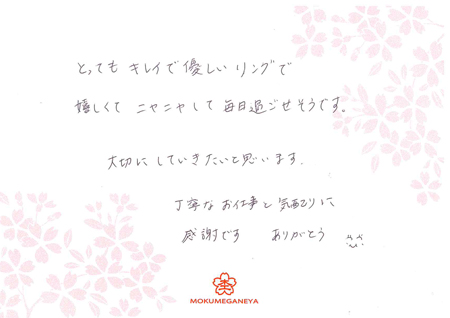 とっても キレイで優しい リングで
嬉しくて ニヤニヤして 毎日過ごせそうです。
大切にしていきたいと思います.
丁寧な お仕事と 気配りに
感謝です ありがとう
MOKUMEGANEYA